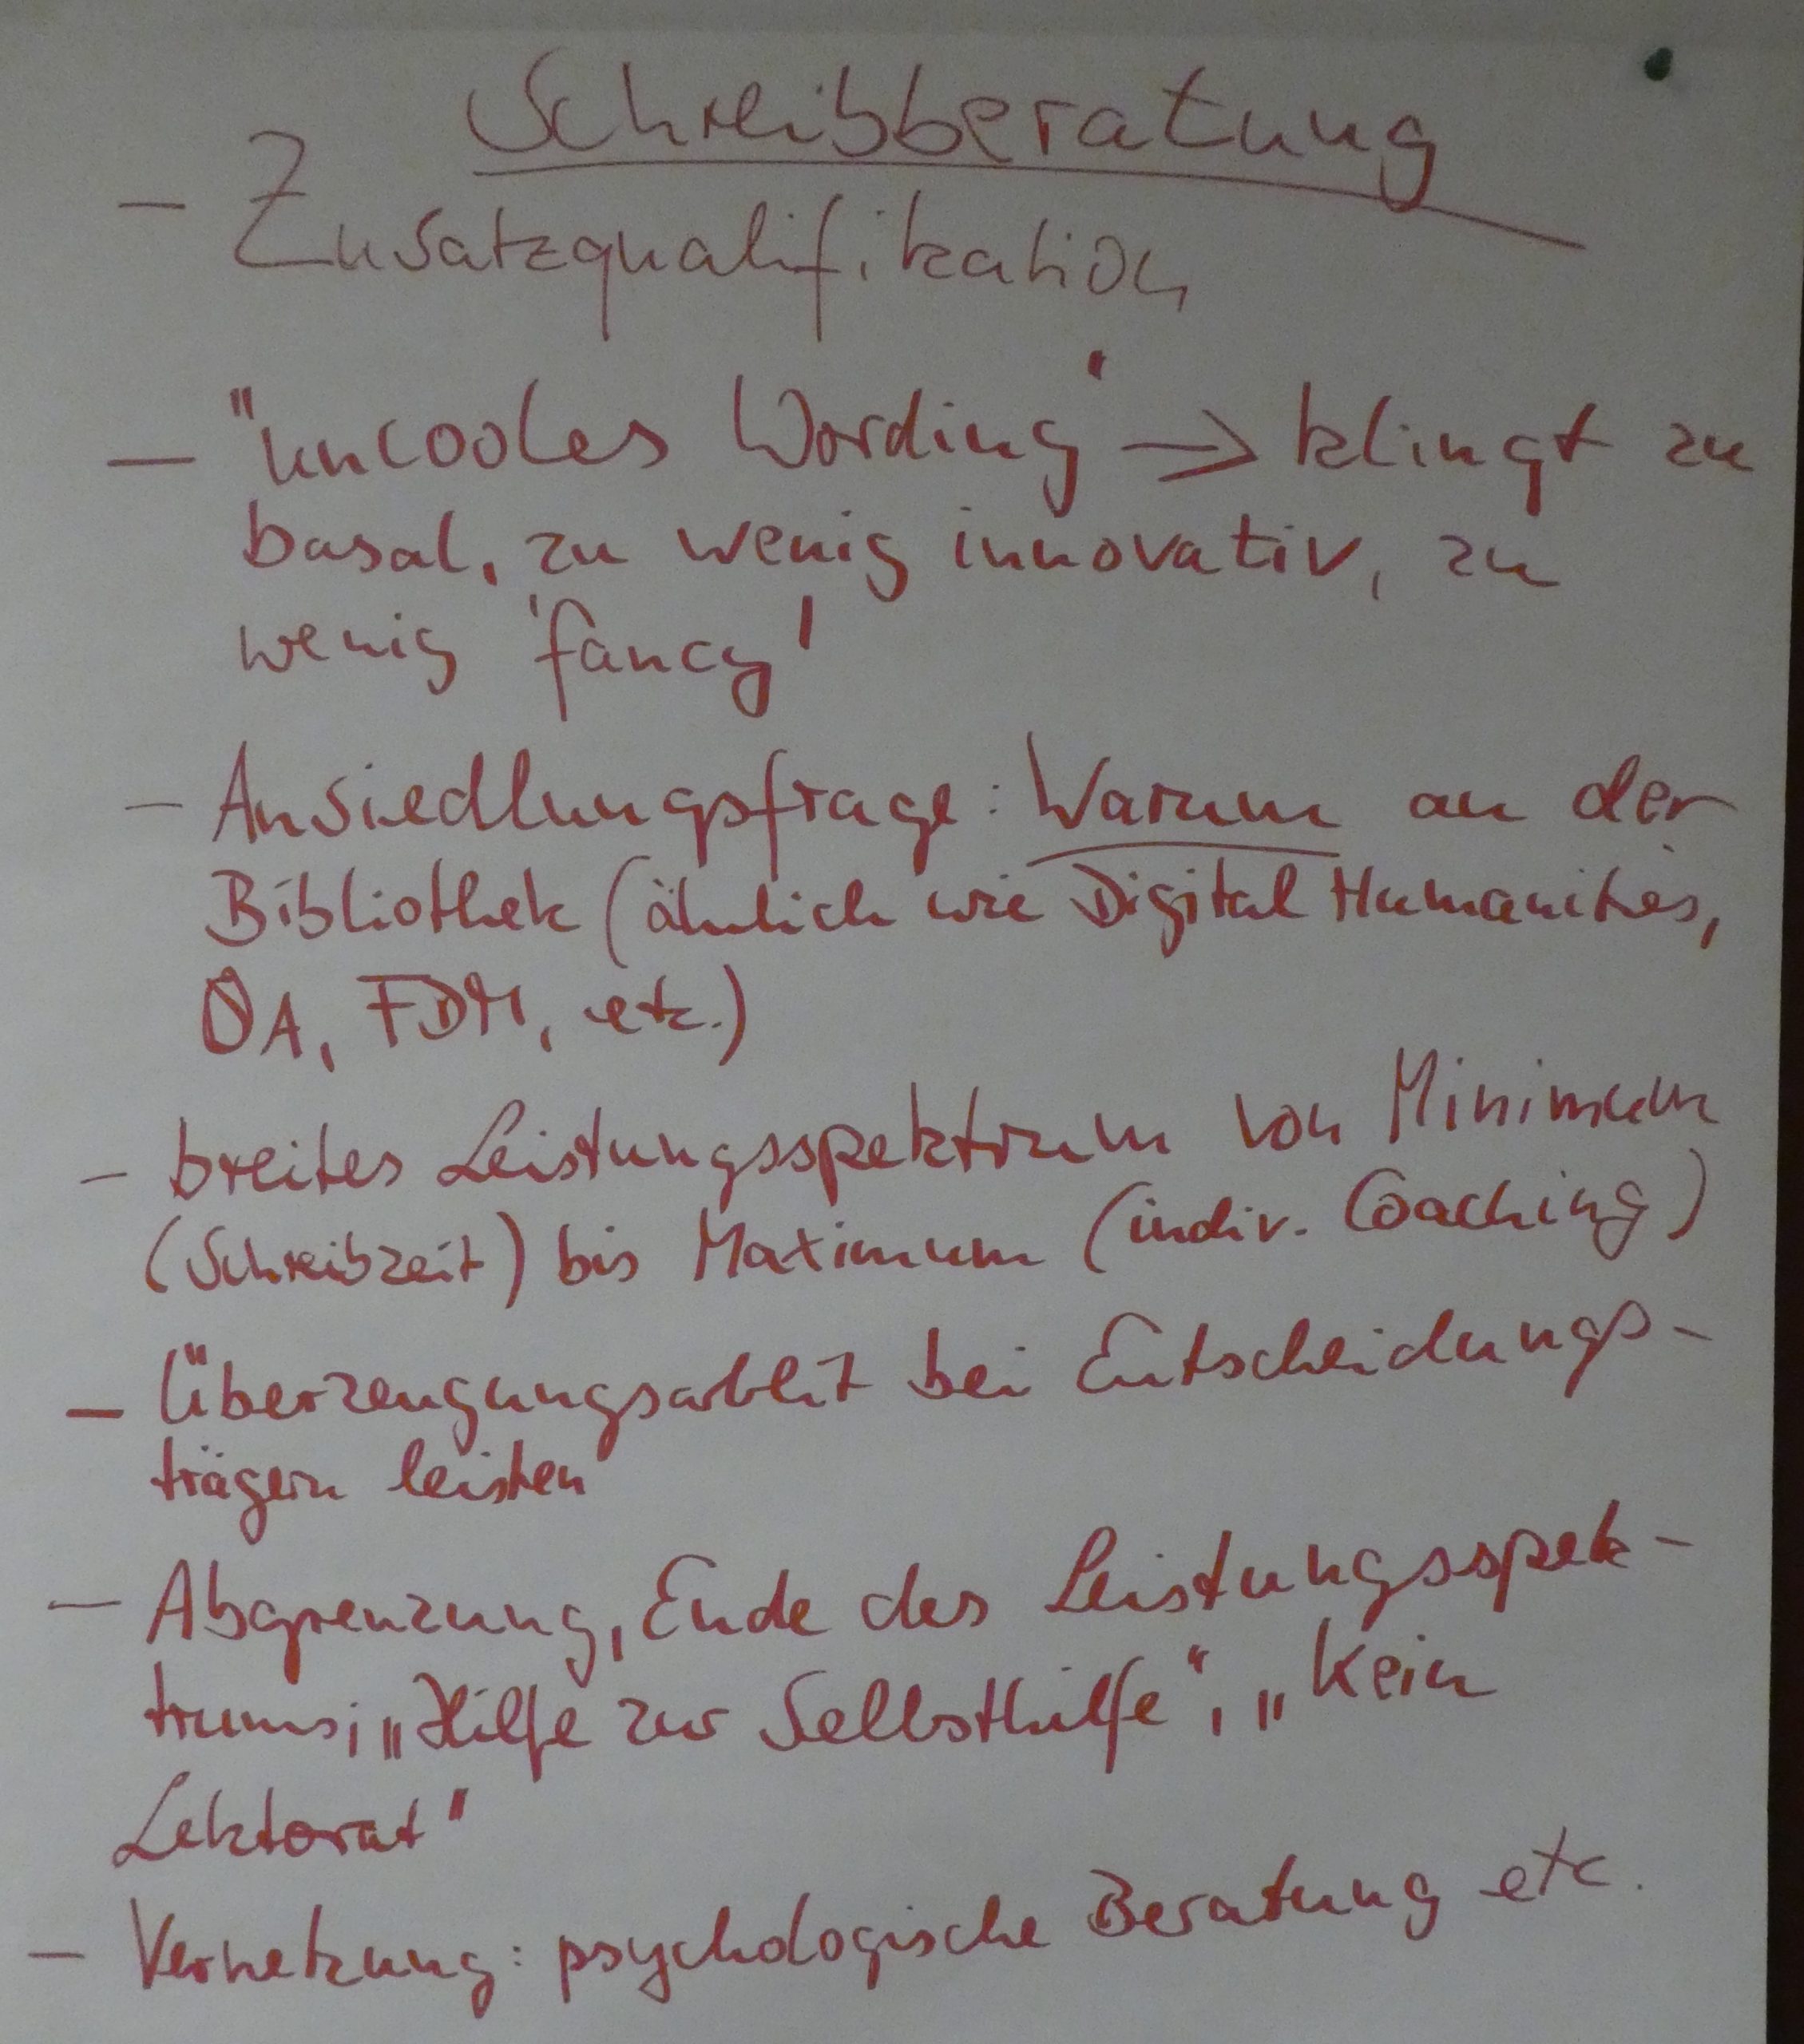 Schreibberatung
- Zusatzqualifikation
- "uncooles Wording" → klingt zu
basal, zu wenig innovativ, zu
wenig 'fancy'
- Ansiedlungsfrage: Warum an der
Bibliothek (ähnlich wie Digital Humanities,
OA, FDM, etc.)
- breites Leistungsspektrum von Minimum
(Schreibzeit) bis Maximum (indiv. Coaching)
- Überzeugungsarbeit bei Entscheidungs-
trägern leisten
- Abgrenzung, Ende des Leistungsspek-
trums; „Hilfe zur Selbsthilfe", „Kein
Lektorat"
- Vernetzung: psychologische Beratung etc.